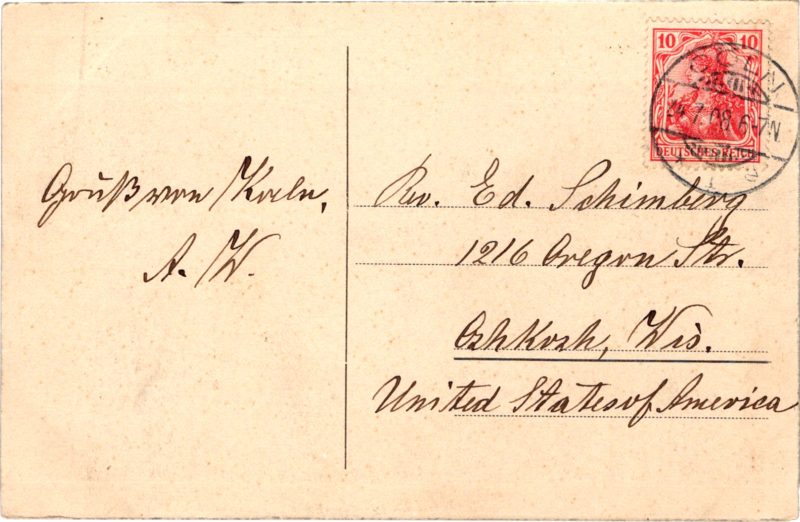 10 10
DEUTSCHES REICH
CÖLN
24.7.08.6-7N.
Gruß von Köln,
A. W.
Rev. Ed. Schimberg
1216 Oregon Str.
Oshkosh, Wis.
United States of America